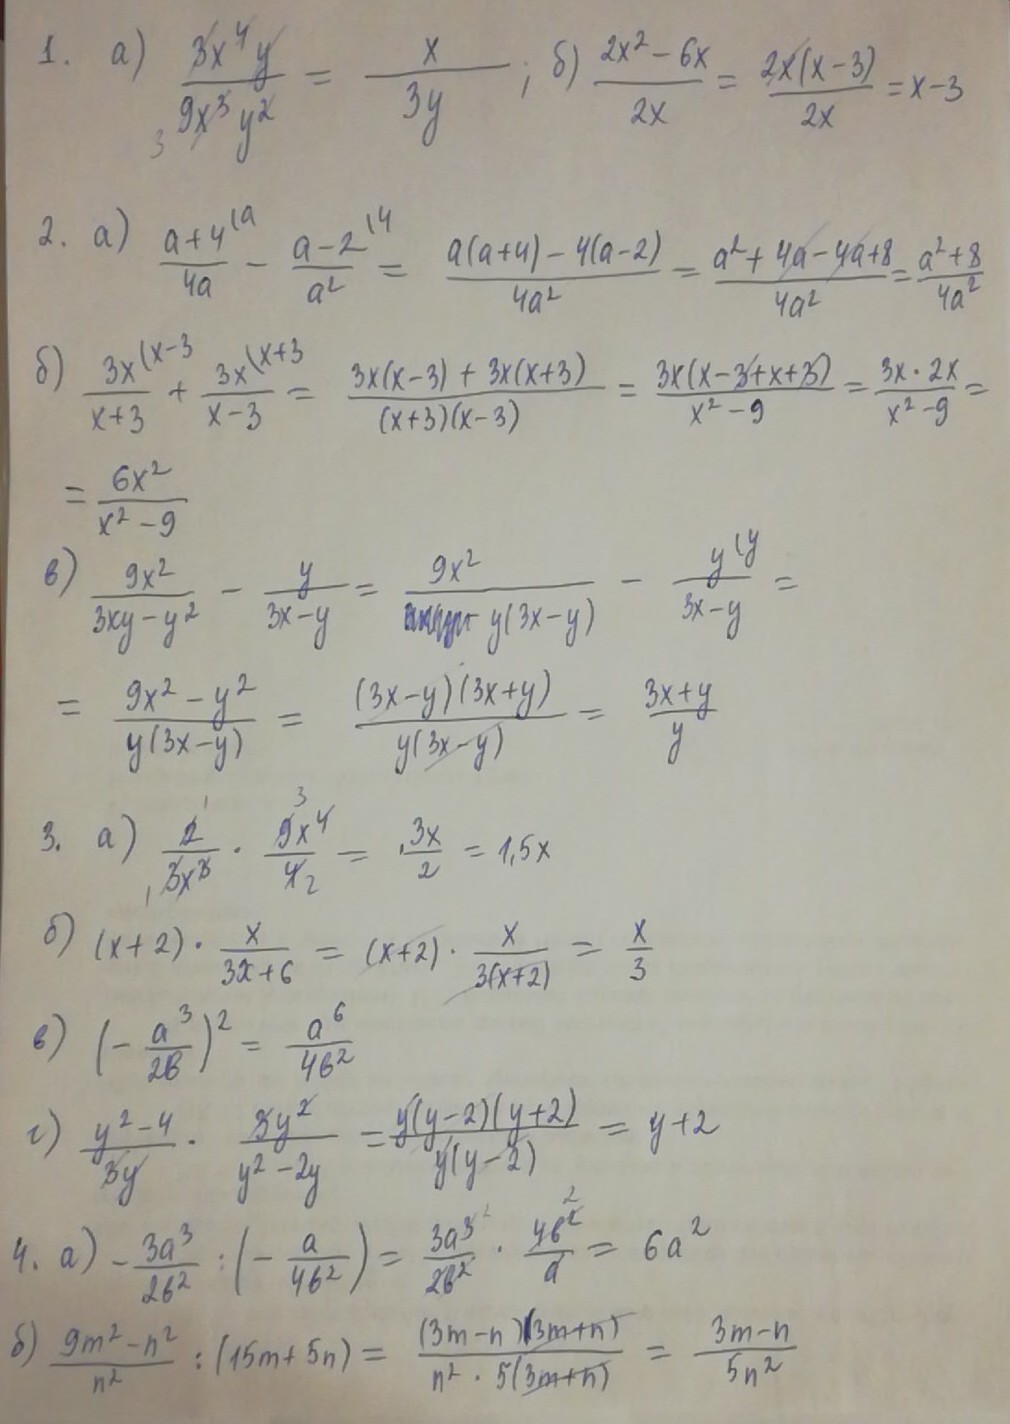 1. а) 3x⁴y/9x³y² = x/3y ; б) (2x² − 6x)/2x = 2x(x−3)/2x = x−3
2. а) (a+4)/4a ⁽ᵃ − (a−2)/a² \⁴ = (a(a+4) − 4(a−2))/4a² = (a² + 4a − 4a + 8)/4a² = (a² + 8)/4a²
б) 3x/(x+3) (x−3 + 3x/(x−3) (x+3 = (3x(x−3) + 3x(x+3))/((x+3)(x−3)) = 3x(x−3+x+3)/(x²−9) = 3x·2x/(x²−9) =
= 6x²/(x²−9)
в) 9x²/(3xy−y²) − y/(3x−y) = 9x²/(y(3x−y)) − y/(3x−y) (y =
= (9x² − y²)/(y(3x−y)) = (3x−y)(3x+y)/(y(3x−y)) = (3x+y)/y
3. а) 2/3x³ · 9x⁴/4 = 3x/2 = 1,5x
б) (x+2) · x/(3x+6) = (x+2) · x/(3(x+2)) = x/3
в) (− a³/2в)² = a⁶/4в²
г) (y²−4)/3y · 3y²/(y²−2y) = y(y−2)(y+2)/(y(y−2)) = y+2
4. а) − 3a³/2в² : (− a/4в²) = 3a³/2в² · 4в²/a = 6a²
б) (9m²−n²)/n² : (15m+5n) = (3m−n)(3m+n)/(n² · 5(3m+n)) = (3m−n)/5n²